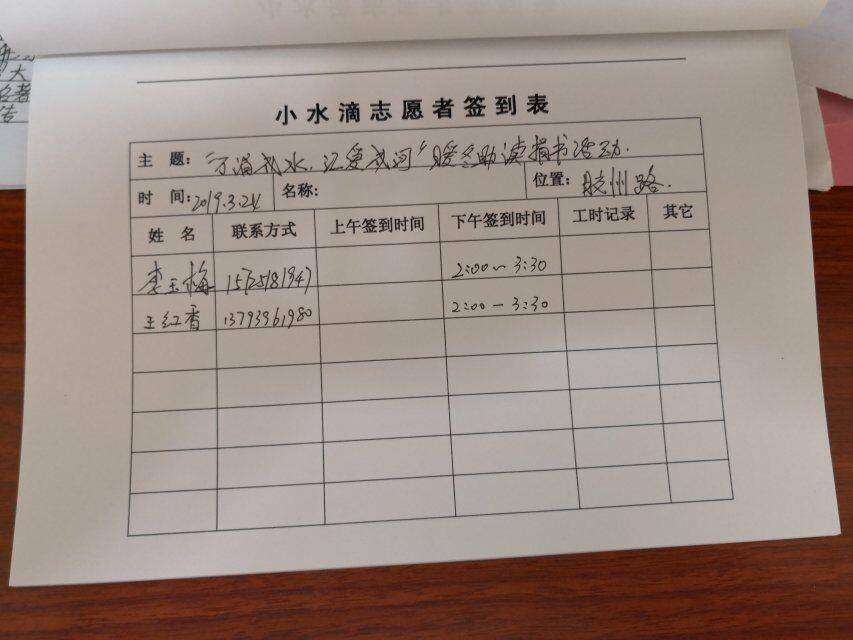 小水滴志愿者签到表
主 题：“万滴成水，汇爱成河”暖冬助读捐书活动.
时 间：2019.3.24 名称： 位置：胶州路.
姓 名 联系方式 上午签到时间 下午签到时间 工时记录 其它
李玉梅 2:00～3:30
王红香 13793961980 2:00－3:30
大
告